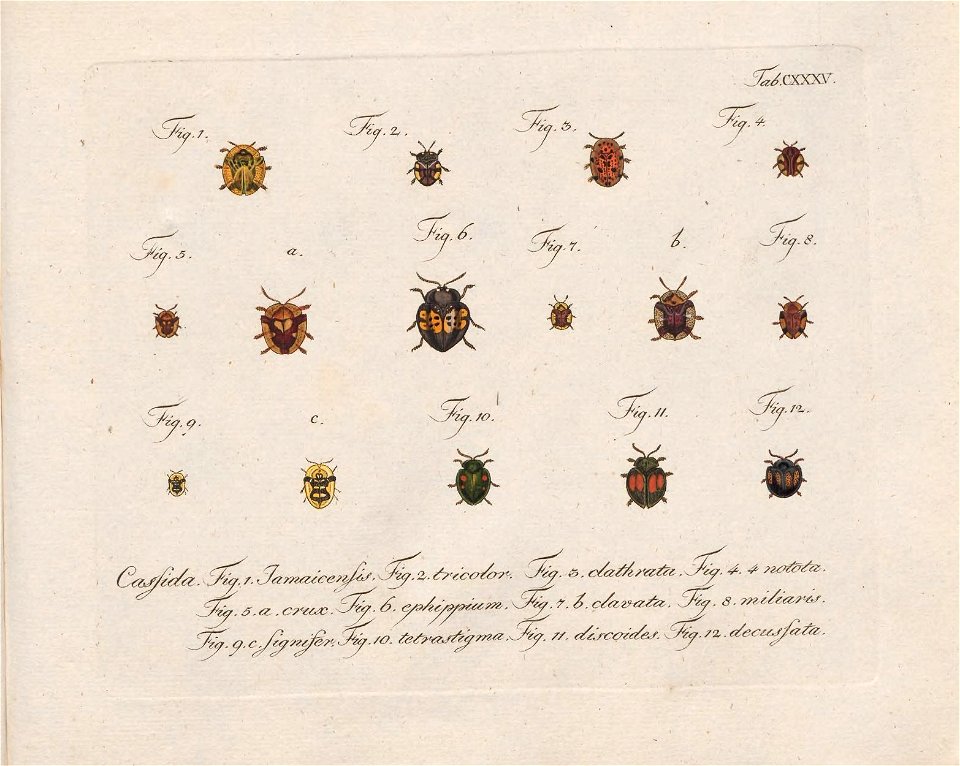 Tab.CXXXV.
Fig.1. Fig.2. Fig.3. Fig.4.
Fig.5. a. Fig.6. Fig.7. b. Fig.8.
Fig.9. c. Fig.10. Fig.11. Fig.12.
Caſsida. Fig.1. Jamaicenſis. Fig.2. tricolor. Fig.3. clathrata. Fig.4. 4 notota.
Fig.5.a. crux. Fig.6. ephippium. Fig.7.b. clavata. Fig.8. miliaris.
Fig.9.c. ſignifer. Fig.10. tetrastigma. Fig.11. discoides. Fig.12. decuſsata.